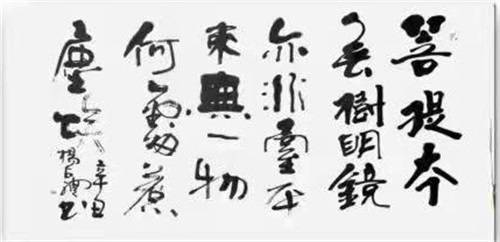 菩提本
無樹明鏡
亦非臺本
來無一物
何處惹
塵埃
辛丑
楊 書